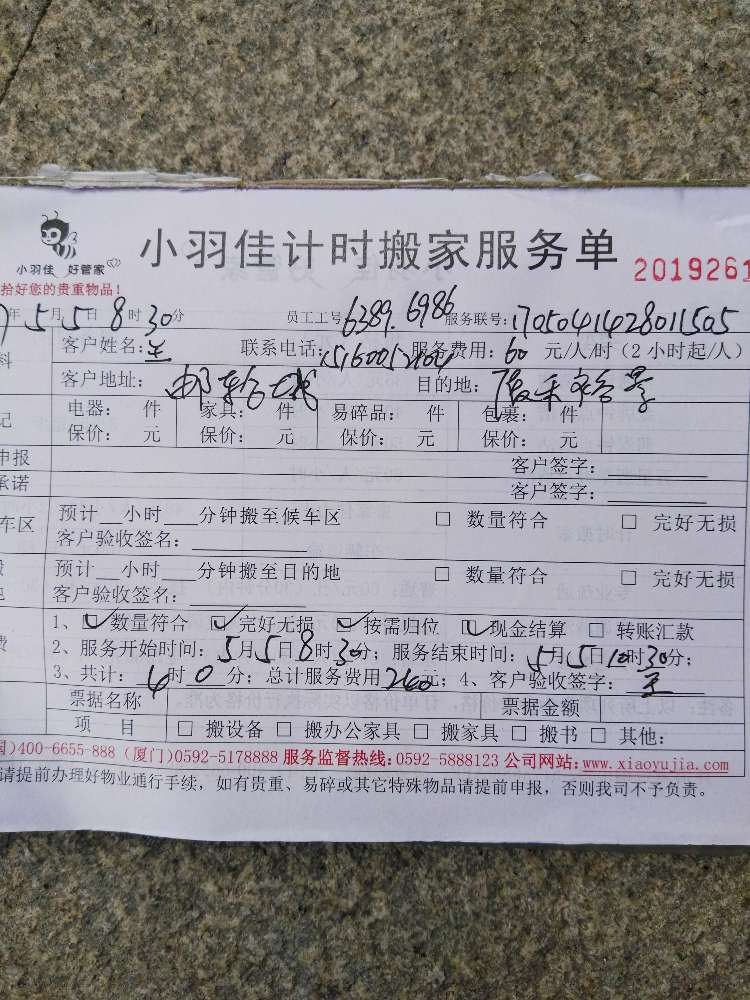 小羽佳 好管家
小羽佳计时搬家服务单 2019261
拾好您的贵重物品!
年 5月 5日 8时 30分 员工工号 6389.6986 服务联号: 170504142801505
客户姓名: 联系电话: 服务费用: 60 元/人/时 (2 小时起/人)
客户地址: 邮轮城 目的地:
电器: 件 家具: 件 易碎品: 件 包裹: 件
记
保价: 元 保价: 元 保价: 元 保价: 元
申报 客户签字:
承诺 客户签字:
车区 预计__小时___分钟搬至候车区 □ 数量符合 □ 完好无损
客户验收签名:
预计__小时___分钟搬至目的地 □ 数量符合 □ 完好无损
客户验收签名:
1、☑数量符合 ☑ 完好无损 ☑ 按需归位 ☑现金结算 □ 转账汇款
费 2、服务开始时间: 5月5日8时30分; 服务结束时间: 5月5日10时30分;
3、共计: 4时 0 分; 总计服务费用240元; 4、客户验收签字:
票据名称 票据金额
项 目 □ 搬设备 □ 搬办公家具 □ 搬家具 □ 搬书 □ 其他:
)400-6655-888 (厦门)0592-5178888 服务监督热线: 0592-5888123 公司网站: www.xiaoyujia.com
请提前办理好物业通行手续, 如有贵重、易碎或其它特殊物品请提前申报, 否则我司不予负责。